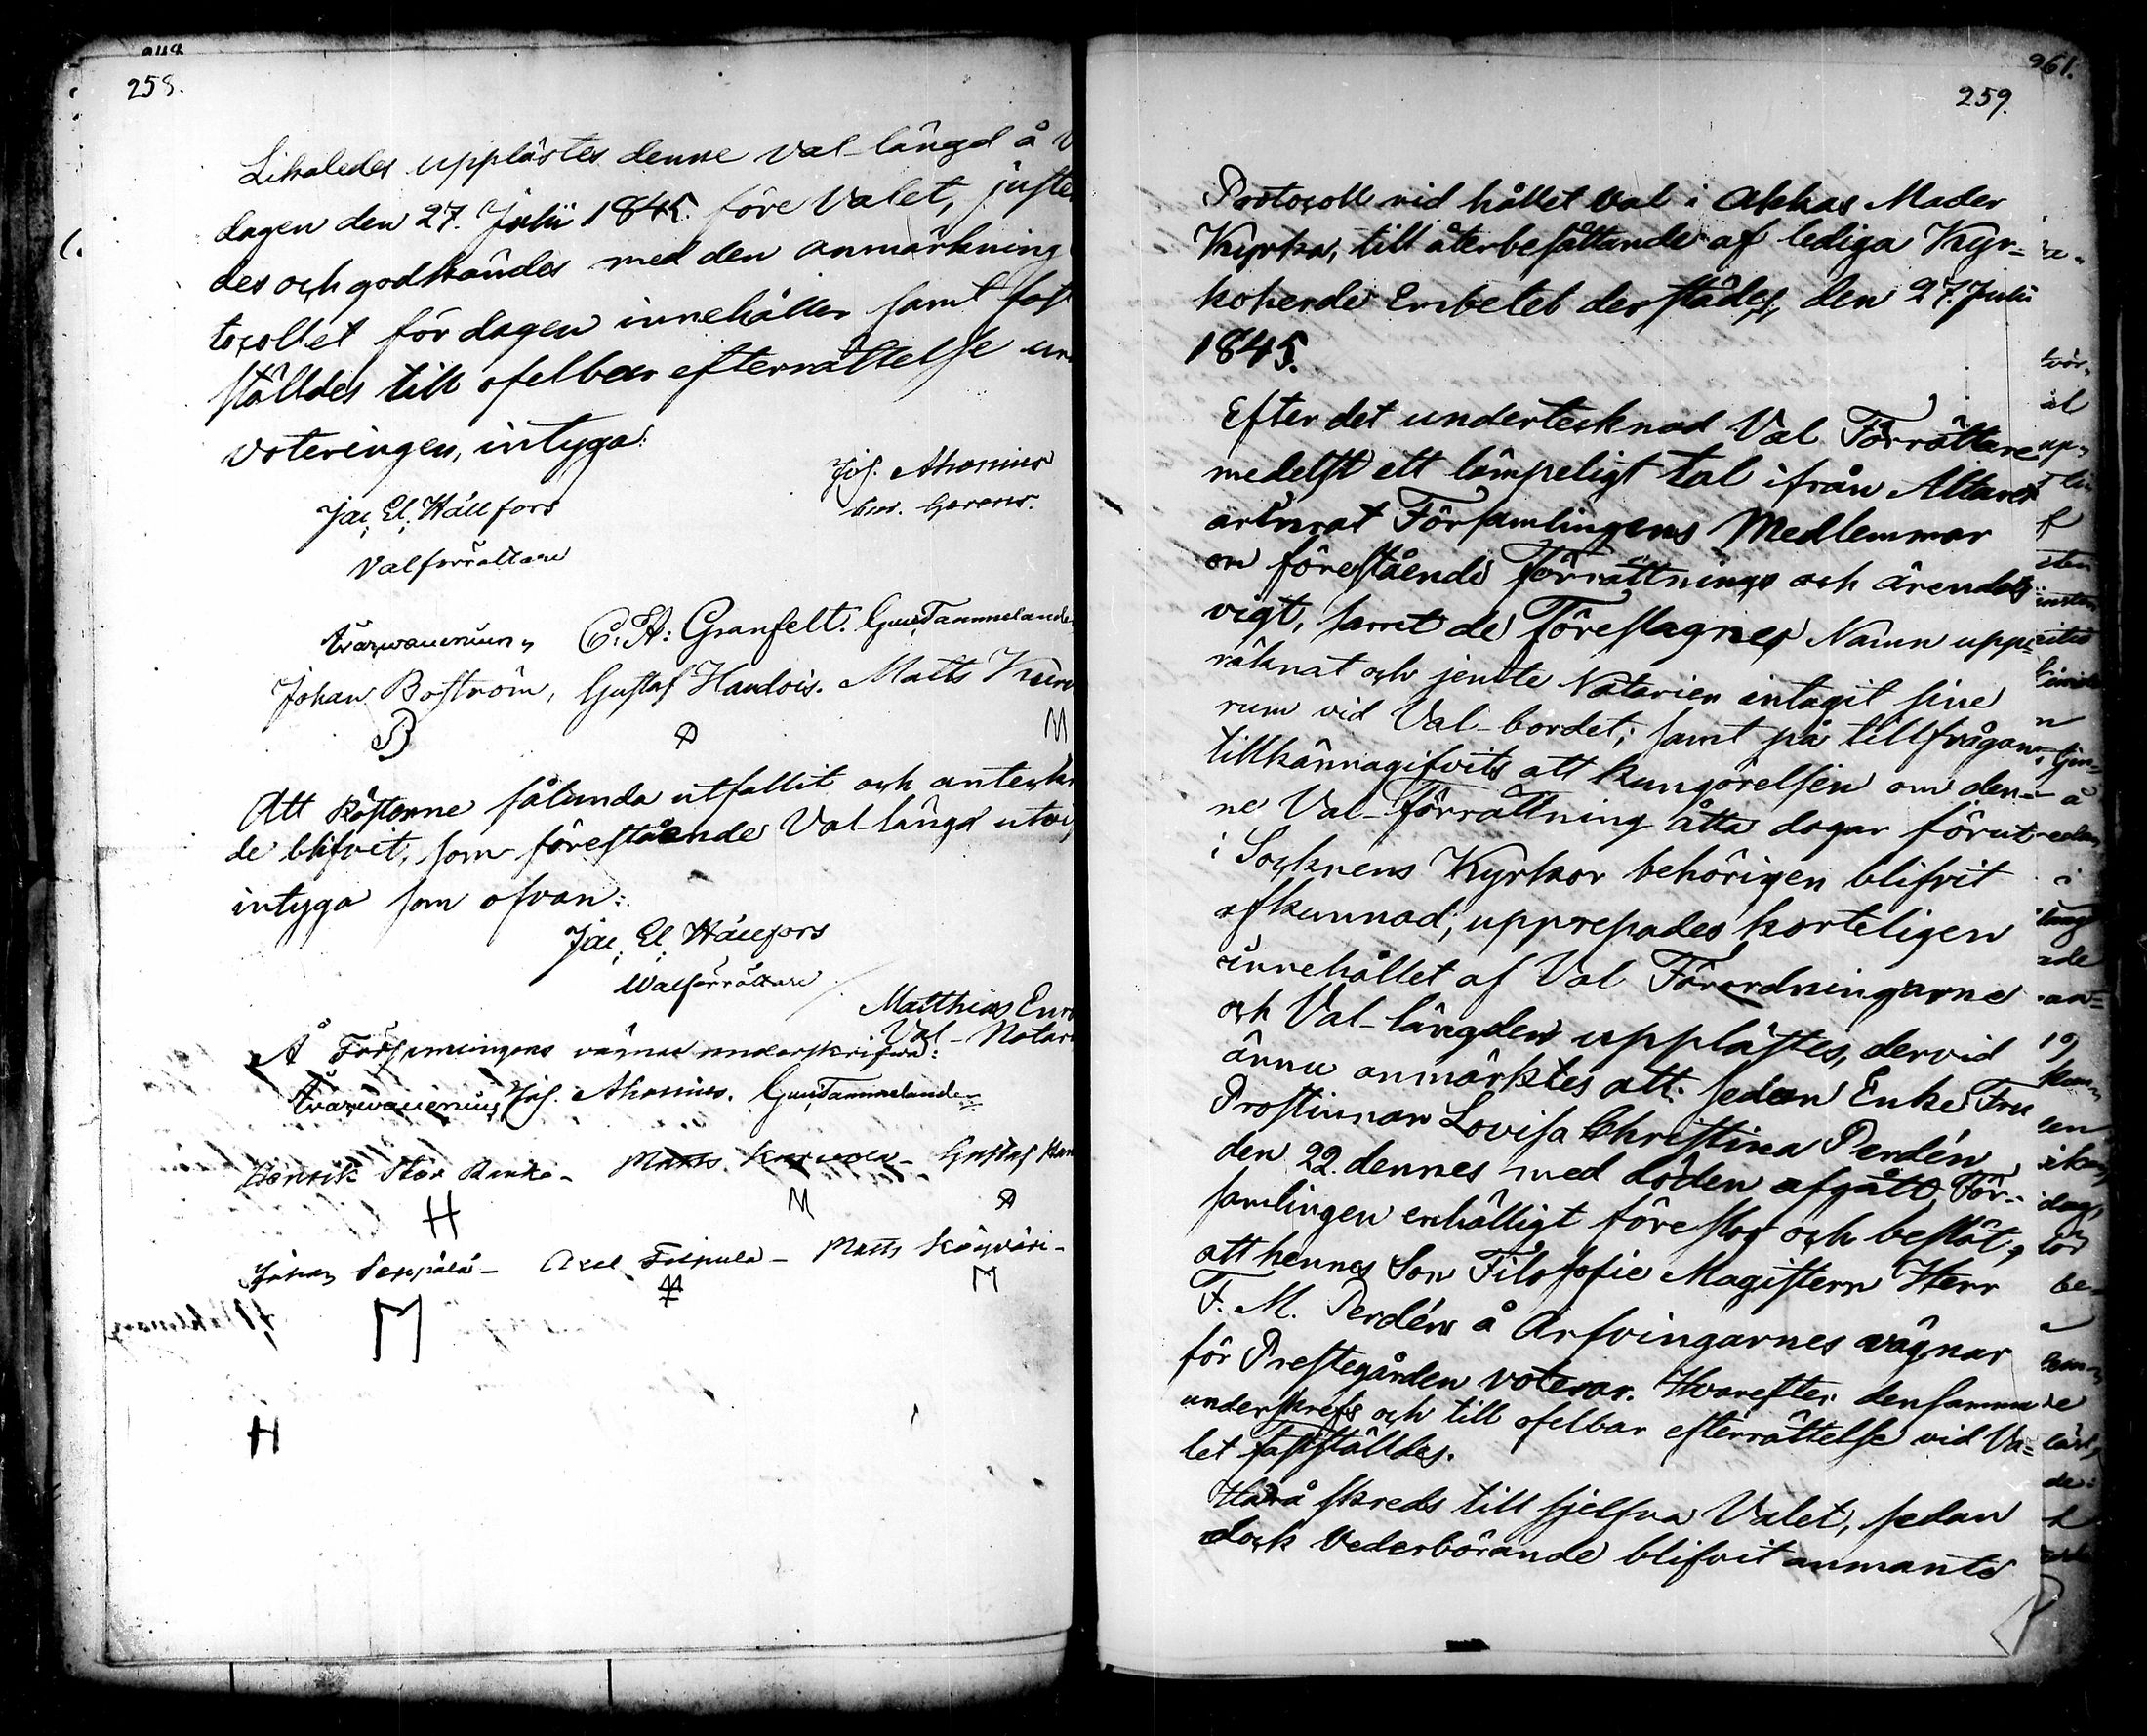 258.
Likaledes upplästes denne Val-längd å
dagen den 27. Julii 1845. före Valet, juste
des och godkändes med den anmärkning
tocollet för dagen innehåller samt fast
ställdes till ofelbar efterrättelse un
voteringen, intyga:
Jac. El. Hällfors
Valförrättare
Joh. Ahonius
C. A: Granfelt. Gust Tammelande
Johan Boström, Gustaf Handois. Matts
B M
Att Rösterne sålunda utfallit och anteckn
de blifvit, som förestående Val-längd utvis
intyga som ofvan:
Jac. El. Hällfors
Valförrättare
Matthias
Val-Notar
Å Församlingens vägnar underskrifva:
Joh. Ahonius. Gust Tammelander
Henrik Stor - Matts - Gustaf Han
H M
Johan Seppälä - Axel - Matts
M M
H
961.
259.
Protocoll vid hållet Val i Akkas Moder
Kyrka, till återbesättande af lediga Kyr-
koherde Embetet derstädes, den 27. Julii
1845.
Efter det undertecknad Val Förrättare
medelst ett lämpeligt tal ifrån Altaret
erinrat Församlingens Medlemmar
om föreståendé Förrättnings och ärendets
vigt, samt de Föreslagnes Namn upp-
räknat och jemte Notarien intagit sine
rum vid Val-bordet; samt på tillfrågan
tillkännagifvits att kungörelsen om den-
ne Val-Förrättning åtta dagar förut
i Socknens Kyrkor behörigen blifvit
afkunnad; upprepades korteligen
innehållet af Val Förordningarne
och Val-längden upplästes, dervid
ännu anmärktes att: sedan Enke Fru
Prostinnan Lovisa Christina Perdén
den 22. dennes med döden afgått, För-
samlingen enhälligt föreslog och beslöt,
att hennes Son Filosofie Magistern Herr
F. M. Perdén å Arfvingarnes vägnar
för Prestegården voterar. Hvarefter densamma
underskrefs och till ofelbar efterrättelse vid Va-
let fastställdes.
Härå skreds till sjelfva Valet, sedan
dock Vederbörande blifvit anmante